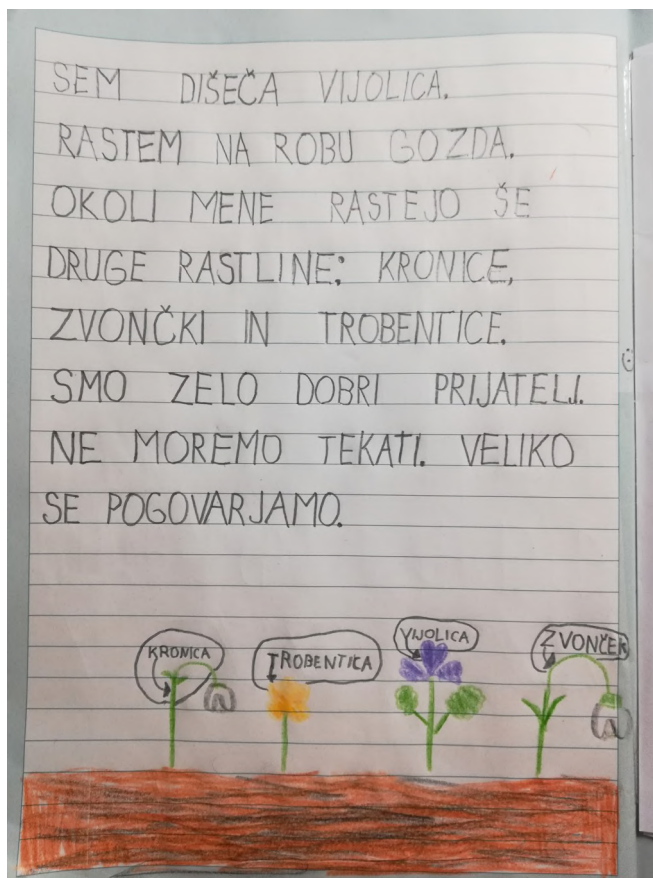 SEM DIŠEČA VIJOLICA.
RASTEM NA ROBU GOZDA.
OKOLI MENE RASTEJO ŠE
DRUGE RASTLINE: KRONICE,
ZVONČKI IN TROBENTICE.
SMO ZELO DOBRI PRIJATELJ.
NE MOREMO TEKATI. VELIKO
SE POGOVARJAMO.
KRONICA
TROBENTICA
VIJOLICA
ZVONČEK